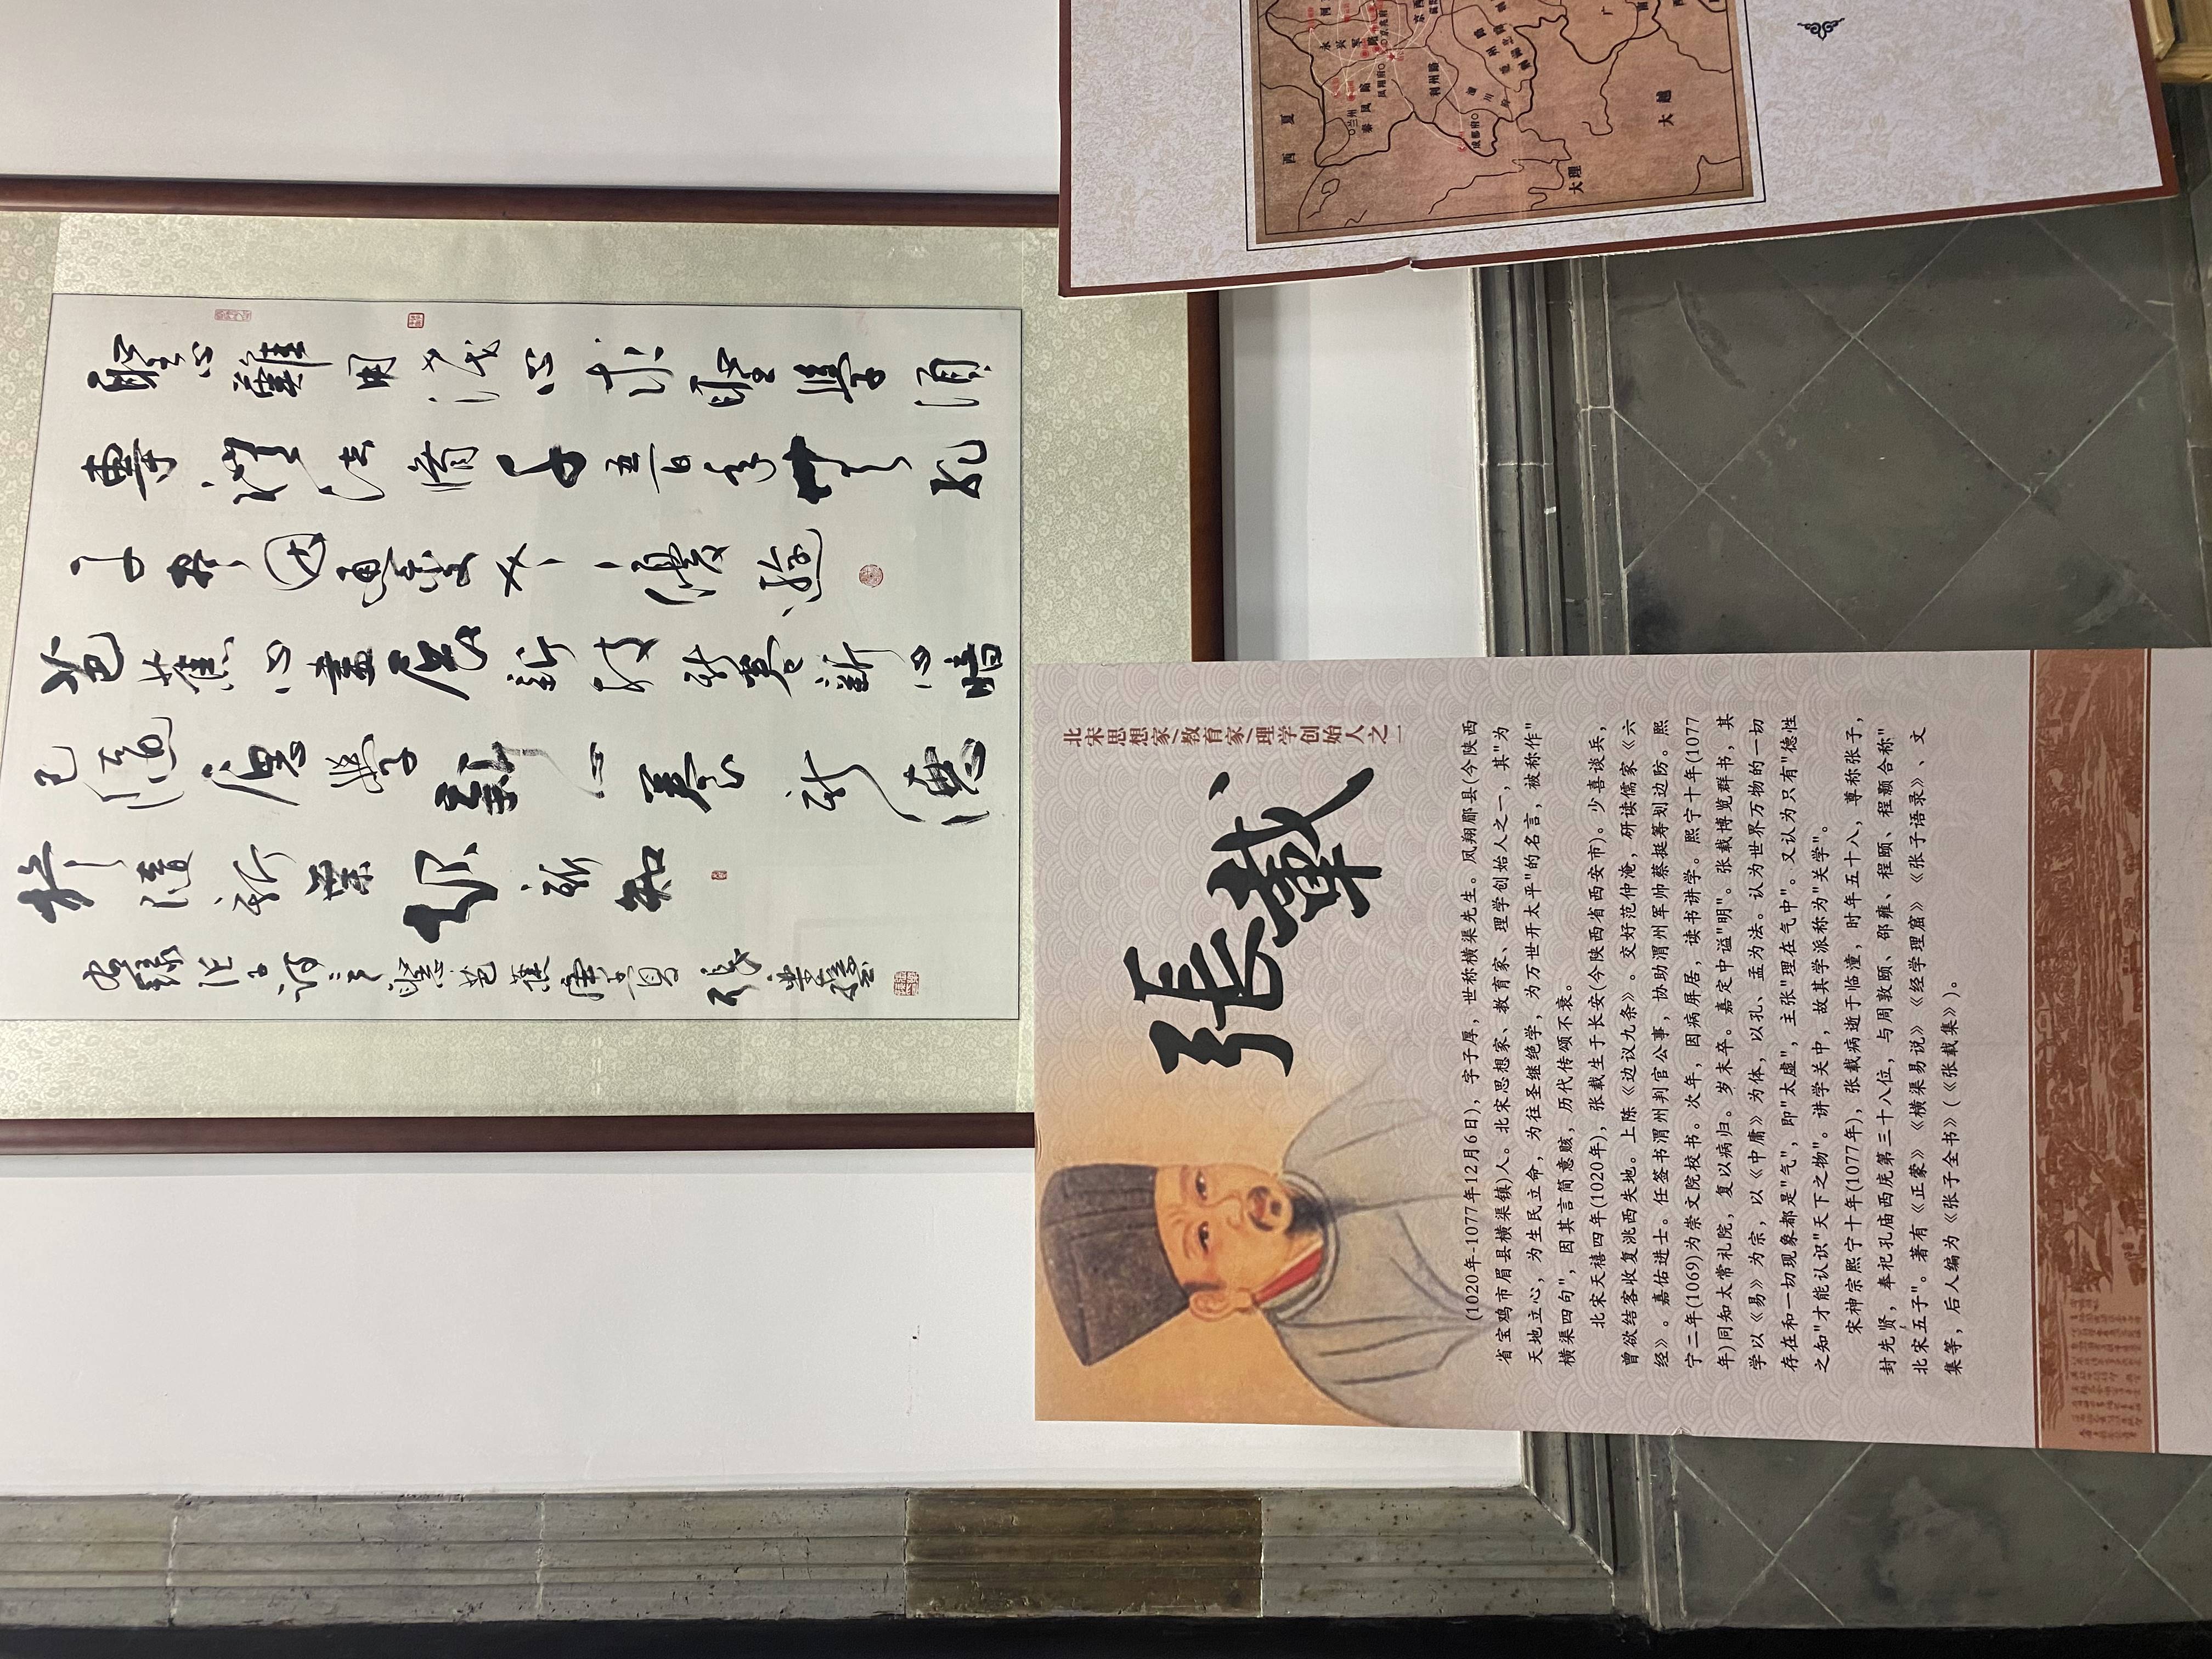 聖心難用浅心求聖學須
專禮法脩千五百年無孔
子盡因通變老優遊
芭蕉心盡展新枝新卷新心暗
已隨願學新心養新德
旋隨新葉起新知
張載
北宋思想家/教育家/理学创始人之一
(1020年-1077年12月6日)，字子厚，世称横渠先生。凤翔郿县(今陕西
省宝鸡市眉县横渠镇)人。北宋思想家、教育家、理学创始人之一，其"为
天地立心，为生民立命，为往圣继绝学，为万世开太平"的名言，被称作"
横渠四句"，因其言简意赅，历代传颂不衰。
北宋天禧四年(1020年)，张载生于长安(今陕西省西安市)。少喜谈兵，
曾欲结客收复洮西失地。上陈《边议九条》。交好范仲淹，研读儒家《六
经》。嘉佑进士。任签书渭州判官公事，协助渭州军帅蔡挺筹划边防。熙
宁二年(1069)为崇文院校书。次年，因病屏居，读书讲学。熙宁十年(1077
年)同知太常礼院，复以病归。岁末卒。嘉定中谥"明"。张载博览群书，其
学以《易》为宗，以《中庸》为体，以孔、孟为法。认为世界万物的一切
存在和一切现象都是"气"，即"太虚"，主张"理在气中"。又认为只有"德性
之知"才能认识"天下之物"。讲学关中，故其学派称为"关学"。
宋神宗熙宁十年(1077年)，张载病逝于临潼，时年五十八，尊称张子，
封先贤，奉祀孔庙西庑第三十八位，与周敦颐、邵雍、程颐、程颢合称"
北宋五子"。著有《正蒙》《横渠易说》《经学理窟》《张子语录》、文
集等，后人编为《张子全书》(《张载集》)。
西夏
永兴军路
兰州
秦凤路
凤翔府
京兆府
利州路
成都府
大理
大越